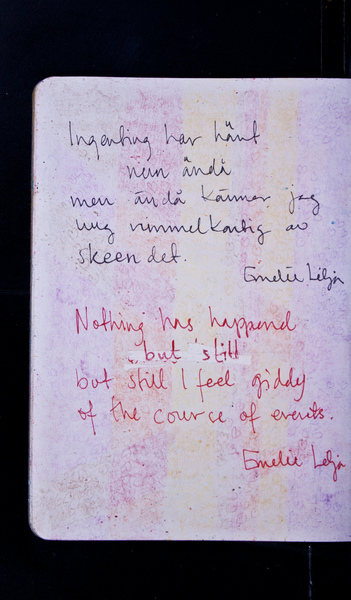 Ingenting har hänt
men ändå
men ändå känner jag
mig vimmelkantig av
skeendet.
Emelie Lilja
Nothing has happend
but still
but still I feel giddy
of the course of events.
Emelie Lilja